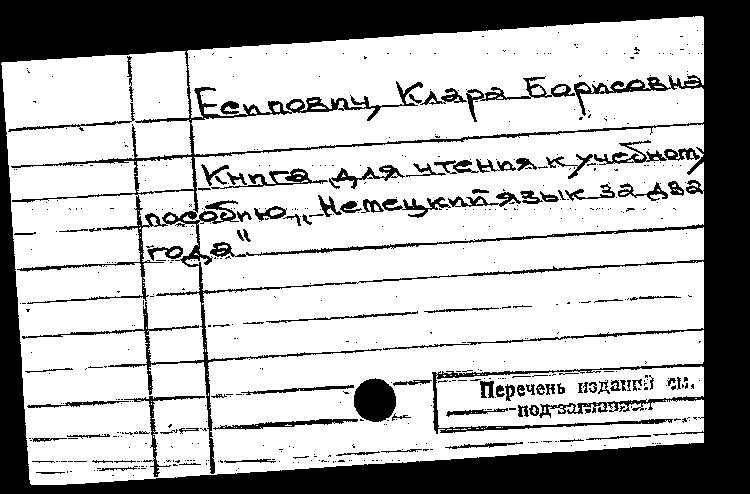 Есипович, Клара Борисовна
Книга для чтения к учебному
пособию „Немецкий язык за два
года".
Перечень изданий см.
под заглавием